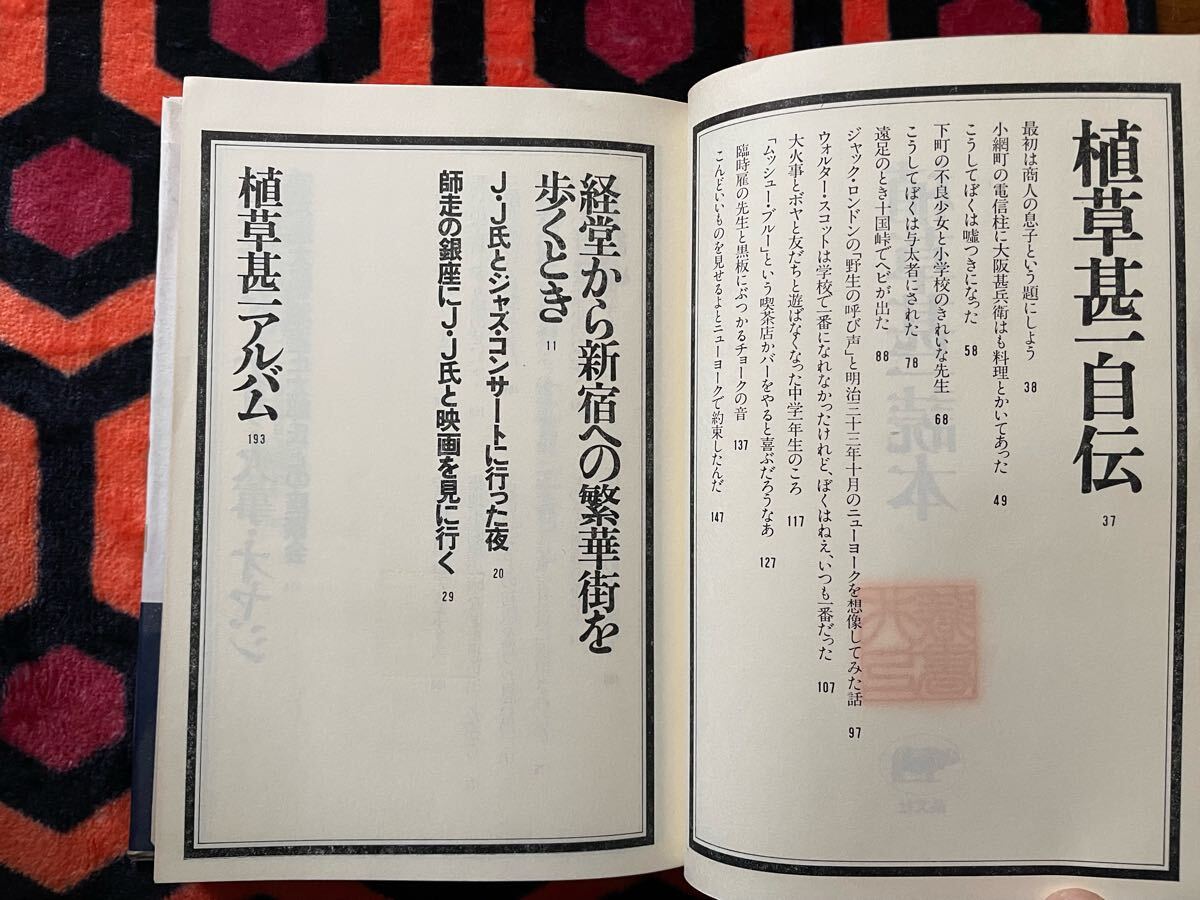 植草甚一自伝 37
最初は商人の息子という題にしよう 38
小網町の電信柱に大阪甚兵衛はも料理とかいてあった 49
こうしてぼくは嘘つきになった 58
下町の不良少女と小学校のきれいな先生 68
こうしてぼくは与太者にされた 78
遠足のとき十国峠でヘビが出た 88
ジャック・ロンドンの「野生の呼び声」と明治三十三年十月のニューヨークを想像してみた話 97
ウォルター・スコットは学校で一番になれなかったけれど、ぼくはねえ、いつも一番だった 107
大火事とボヤと友だちと遊ばなくなった中学一年生のころ 117
「ムッシュー・ブルー」という喫茶店かバーをやると喜ぶだろうなあ 127
臨時雇の先生と黒板にぶつかるチョークの音 137
こんどいいものを見せるよとニューヨークで約束したんだ 147
経堂から新宿への繁華街を
歩くとき 11
J・J氏とジャズ・コンサートに行った夜 20
師走の銀座にJ・J氏と映画を見に行く 29
植草甚一アルバム 193